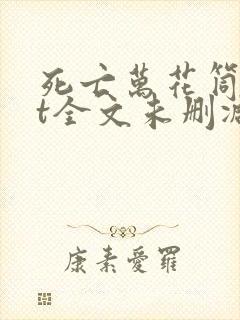 死亡萬花筒
t全文未删减
康素愛羅